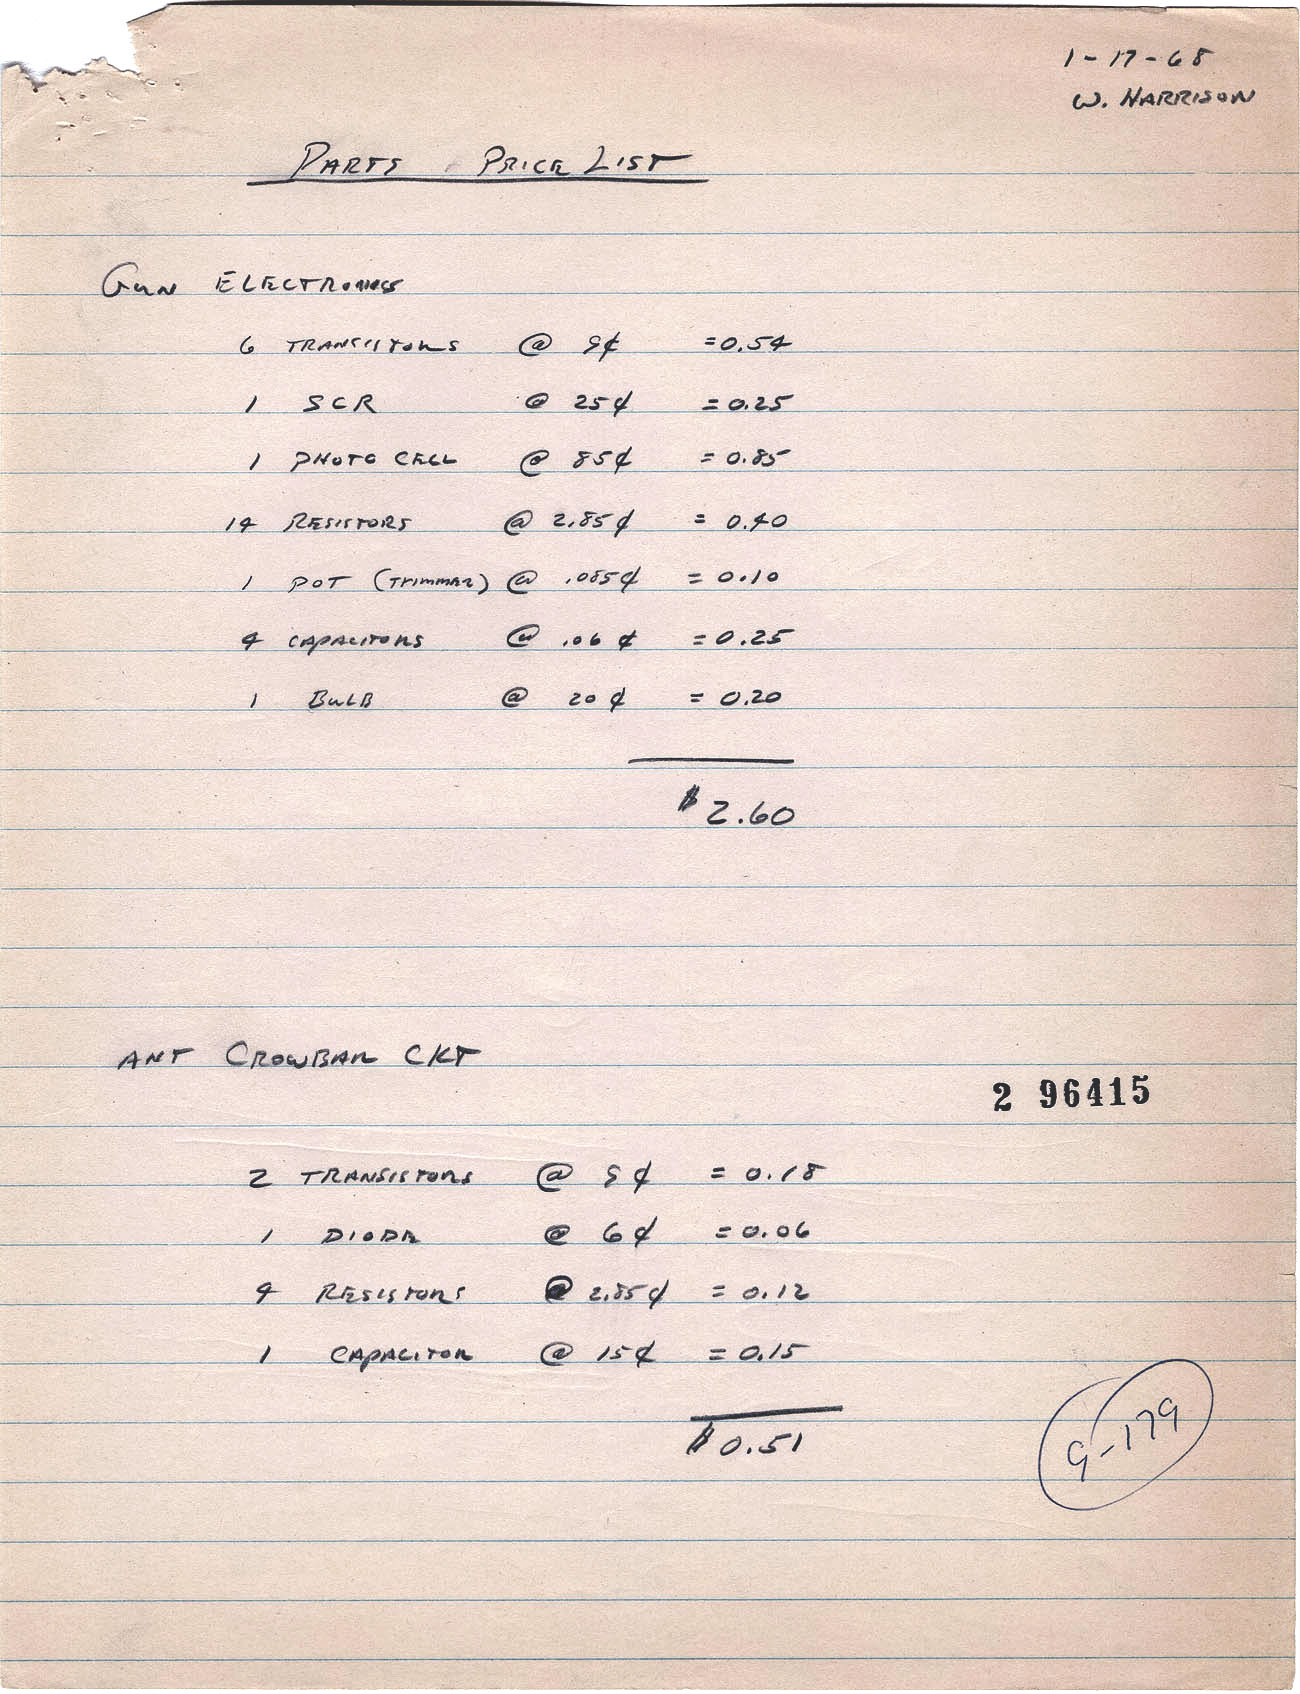 1-17-68
W. HARRISON
PARTS PRICE LIST
GUN ELECTRONICS
6 TRANSISTORS @ 9¢ =0.54
1 SCR @ 25¢ =0.25
1 PHOTO CELL @ 85¢ =0.85
14 RESISTORS @ 2.85¢ = 0.40
1 POT (TRIMMER) @ .085¢ = 0.10
4 CAPACITORS @ .06¢ =0.25
1 BULB @ 20¢ = 0.20
$2.60
ANT CROWBAR CKT
2 96415
2 TRANSISTORS @ 9¢ = 0.18
1 DIODE @ 6¢ =0.06
4 RESISTORS @ 2.85¢ = 0.12
1 CAPACITOR @ 15¢ =0.15
$0.51
9-179